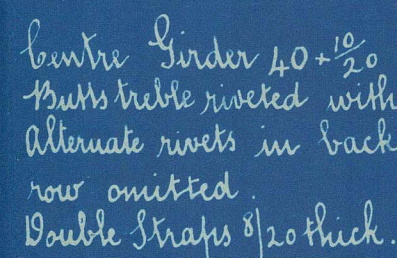 Centre Girder 40 + 10/20
Butts treble riveted with
Alternate rivets in back
row omitted.
Double Straps 8/20 thick.